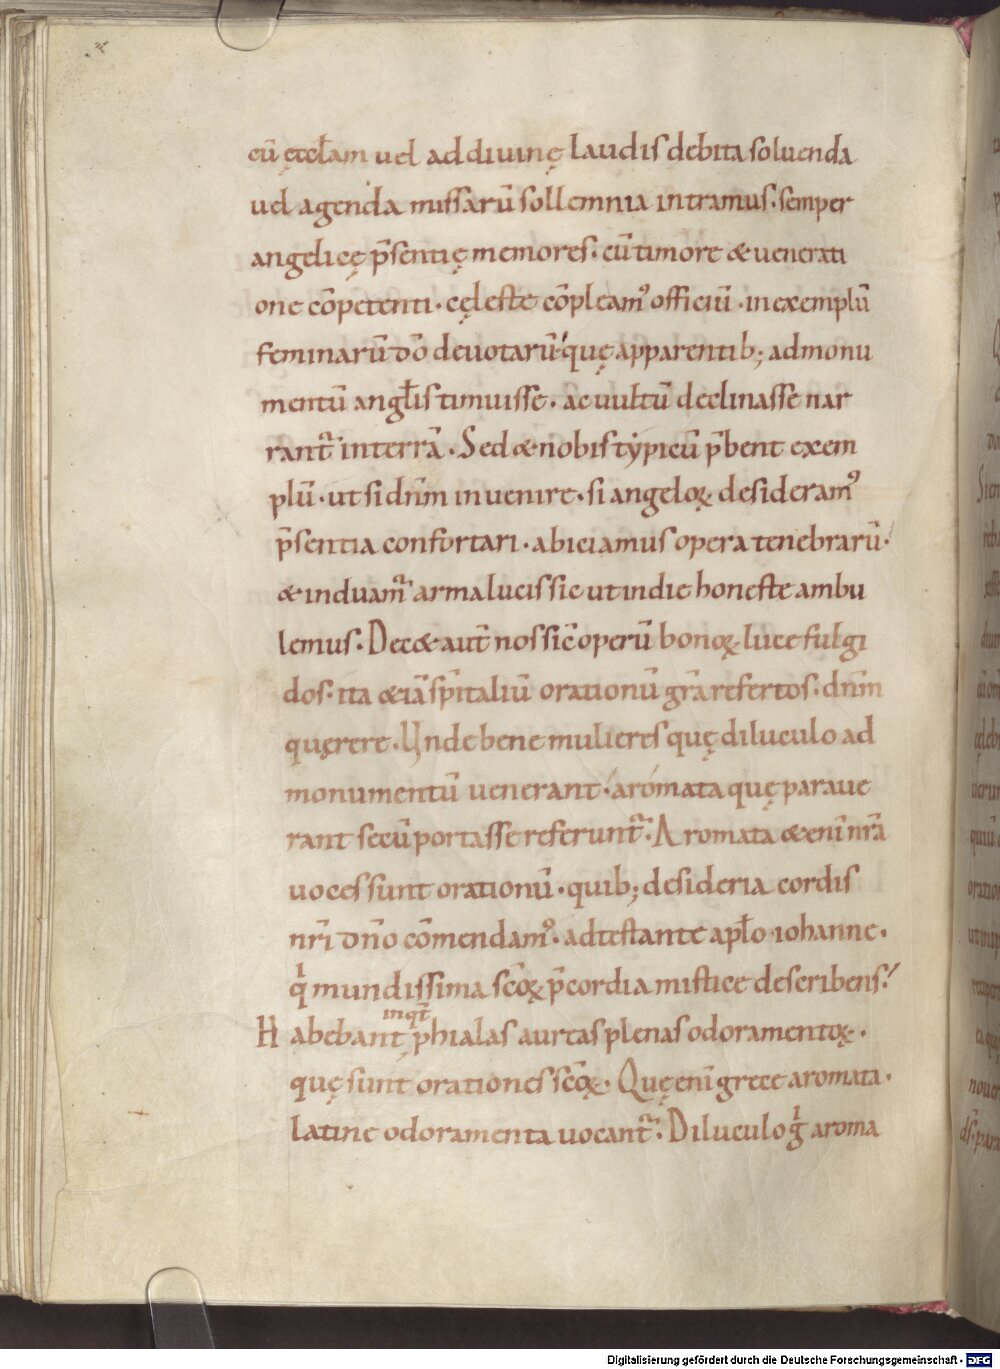 cū ęccłam vel ad diuinę laudis debita soluenda
uel agenda missarū sollemnia intramus· semper
angelicę p̄sentię memores· cū timore & uenerati
one cōpetenti· cęleste cōpleamꝰ officiū· in exemplū
feminarū dō deuotarū· quę apparentib; ad monu
mentū angłis timuisse· ac uultū declinasse nar
rant᷑ in terrā· Sed & nobis typicū p̄bent exem
plū· ut si dn̄m inuenire· si angeloꝝ desideramꝰ
p̄sentia confortari· abiciamus opera tenebrarū·
& induam᷑ arma lucis sic ut in die honeste ambu
lemus· Dec& aut̄ nos sic̄ operū bonoꝝ luce fulgi
dos· ita & iā sp̄italiū orationū gr̄a refertos· dn̄m
quęrere· Unde bene mulieres quę diluculo ad
monumentū uenerant· aromata quę paraue
rant secū portasse referunt᷑· Aromata & enī nr̄a
uoces sunt orationū· quib; desideria cordis
nr̄i dn̄o cōmendamꝰ· adtestante apło iohanne·
qͥ mundissima sc̄oꝝ p̄cordia mistice describens·
Habebant inqt̄ phialas aureas plenas odoramentoꝝ·
quę sunt orationes sc̄oꝝ· Quę enī grece aromata·
latine odoramenta uocant᷑· Diluculo gͥ aroma
Digitalisierung gefördert durch die Deutsche Forschungsgemeinschaft - DFG